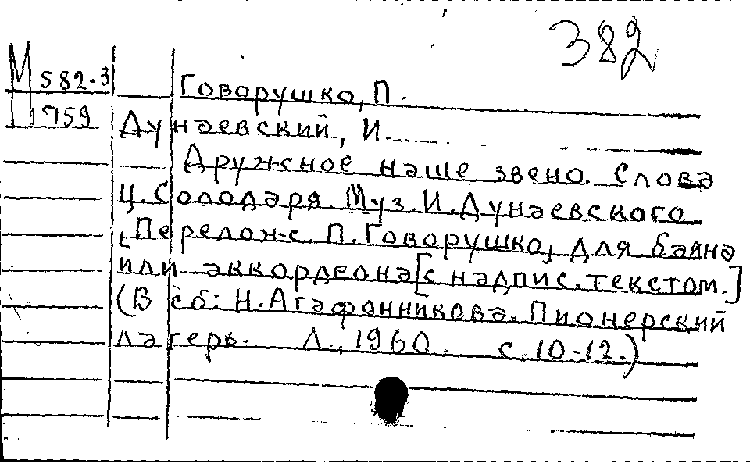 382
М 582-3
1759
Говорушко, П.
Дунаевский, И.
Дружное наше звено. Слова
Ц. Солодаря. Муз. И. Дунаевского
[Перелож. П. Говорушко, для баяна
или аккордеона [с надпис. текстом.]
(В сб: Н. Агафонникова. Пионерский
лагерь. Л., 1960. с. 10-12.)